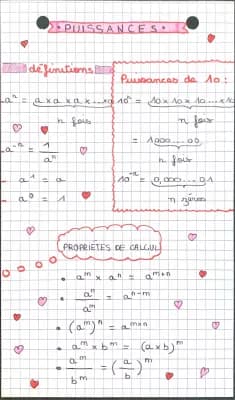 • PUISSANCES •
définitions
aⁿ = a x a x a x ... x a
n fois
a⁻ⁿ = 1/aⁿ
a¹ = a
a⁰ = 1
Puissances de 10 :
10ⁿ = 10 x 10 x 10 ... x 10
n fois
= 1000 ... 00
n fois
10⁻ⁿ = 0,000 ... 01
n zéros
PROPRIETES DE CALCUL
• aᵐ x aⁿ = aᵐ⁺ⁿ
• aⁿ/aᵐ = aⁿ⁻ᵐ
• (aᵐ)ⁿ = aᵐˣⁿ
• aᵐ x bᵐ = (a x b)ᵐ
• aᵐ/bᵐ = (a/b)ᵐ